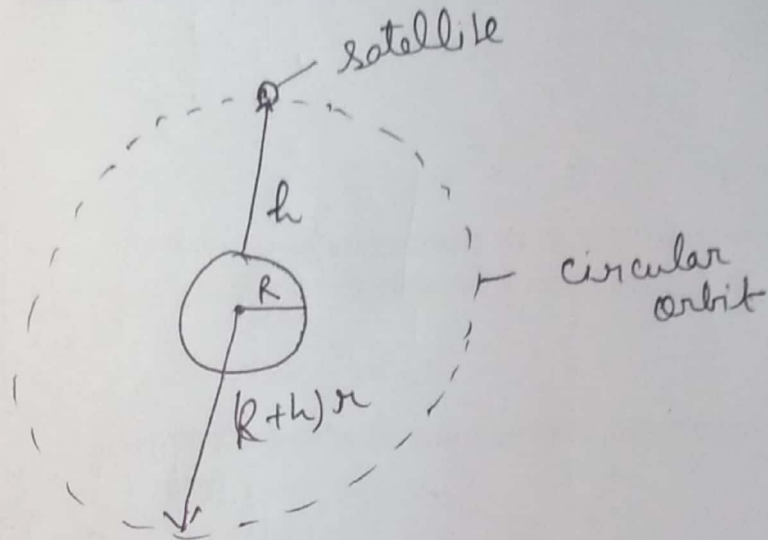 satellite
h
R
circular
orbit
(R+h) r